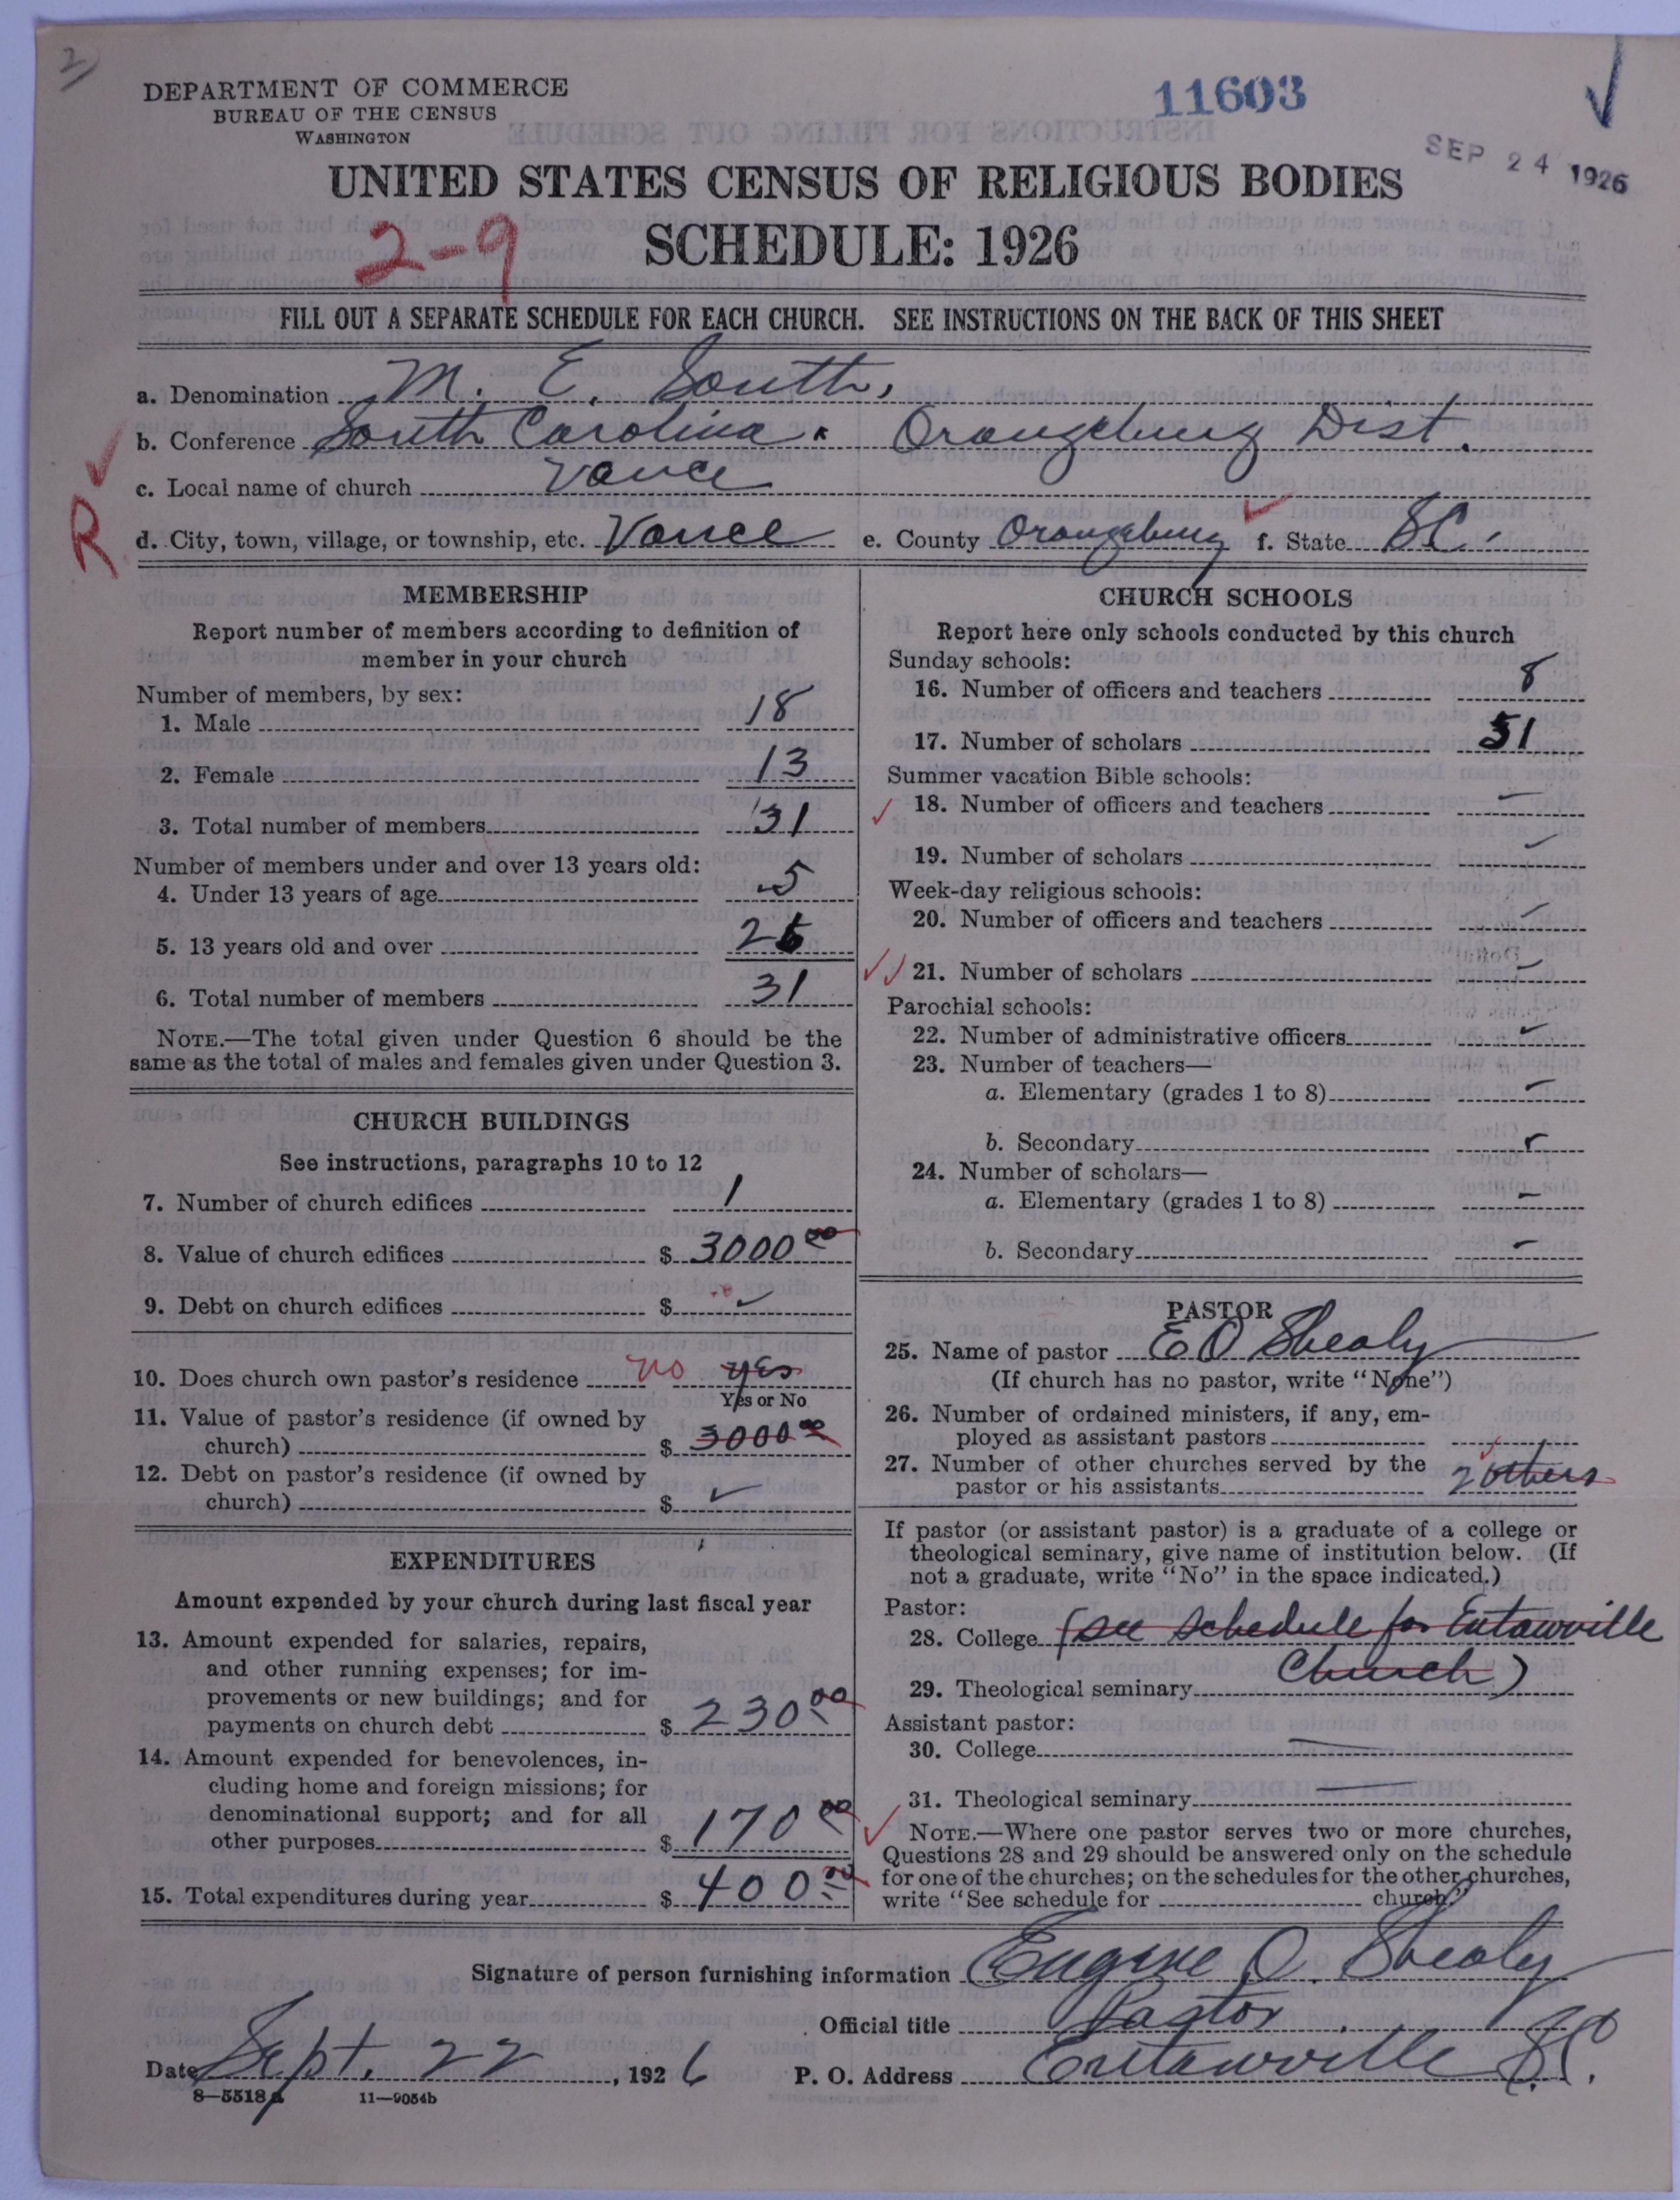 2
DEPARTMENT OF COMMERCE
BUREAU OF THE CENSUS
WASHINGTON
11603
SEP 24 1926
UNITED STATES CENSUS OF RELIGIOUS BODIES
2-9
SCHEDULE: 1926
FILL OUT A SEPARATE SCHEDULE FOR EACH CHURCH. SEE INSTRUCTIONS ON THE BACK OF THIS SHEET
a. Denomination M. E. South,
b. Conference South Carolina. Orangeburg Dist.
c. Local name of church Vance
R
d. City, town, village, or township, etc. Vance e. County Orangeburg f. State SC.
MEMBERSHIP
Report number of members according to definition of
member in your church
Number of members, by sex:
1. Male 18
2. Female 13
3. Total number of members 31
Number of members under and over 13 years old:
4. Under 13 years of age 5
5. 13 years old and over 26
6. Total number of members 31
NOTE.—The total given under Question 6 should be the
same as the total of males and females given under Question 3.
CHURCH BUILDINGS
See instructions, paragraphs 10 to 12
7. Number of church edifices 1
8. Value of church edifices $ 3000 00
9. Debt on church edifices $
10. Does church own pastor's residence no yes
Yes or No
11. Value of pastor's residence (if owned by
church) $ 3000 00
12. Debt on pastor's residence (if owned by
church) $
EXPENDITURES
Amount expended by your church during last fiscal year
13. Amount expended for salaries, repairs,
and other running expenses; for im-
provements or new buildings; and for
payments on church debt $ 230 00
14. Amount expended for benevolences, in-
cluding home and foreign missions; for
denominational support; and for all
other purposes $ 170 00
15. Total expenditures during year $ 400 00
CHURCH SCHOOLS
Report here only schools conducted by this church
Sunday schools:
16. Number of officers and teachers 8
17. Number of scholars 51
Summer vacation Bible schools:
18. Number of officers and teachers –
19. Number of scholars –
Week-day religious schools:
20. Number of officers and teachers –
21. Number of scholars –
Parochial schools:
22. Number of administrative officers –
23. Number of teachers—
a. Elementary (grades 1 to 8) –
b. Secondary –
24. Number of scholars—
a. Elementary (grades 1 to 8) –
b. Secondary –
PASTOR
25. Name of pastor E O Shealy
(If church has no pastor, write "None")
26. Number of ordained ministers, if any, em-
ployed as assistant pastors
27. Number of other churches served by the
pastor or his assistants 2 others
If pastor (or assistant pastor) is a graduate of a college or
theological seminary, give name of institution below. (If
not a graduate, write "No" in the space indicated.)
Pastor:
28. College (see schedule for Eutawville
Church)
29. Theological seminary
Assistant pastor:
30. College –
31. Theological seminary –
NOTE.—Where one pastor serves two or more churches,
Questions 28 and 29 should be answered only on the schedule
for one of the churches; on the schedules for the other churches,
write "See schedule for church."
Signature of person furnishing information Eugene O. Shealy
Official title Pastor
Date Sept. 22, 1926 P. O. Address Eutawville SC.
8—5518a 11—9054b